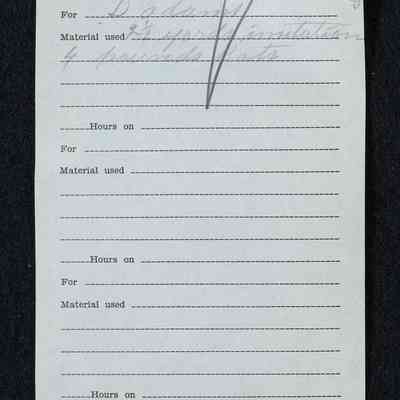 For D Adams
Material used 2½ yards imitation
4 pounds
Hours on
For
Material used
Hours on
For
Material used
Hours on